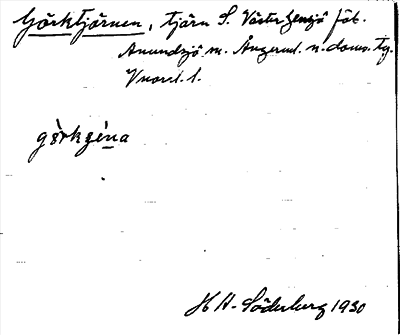 Görktjärnen, tjärn S. Västergensjö fäb.
Anundsjö sn. Ångerml. n. doms. tg.
Vnorrl. l.
görkzèna
H A. Söderberg 1930